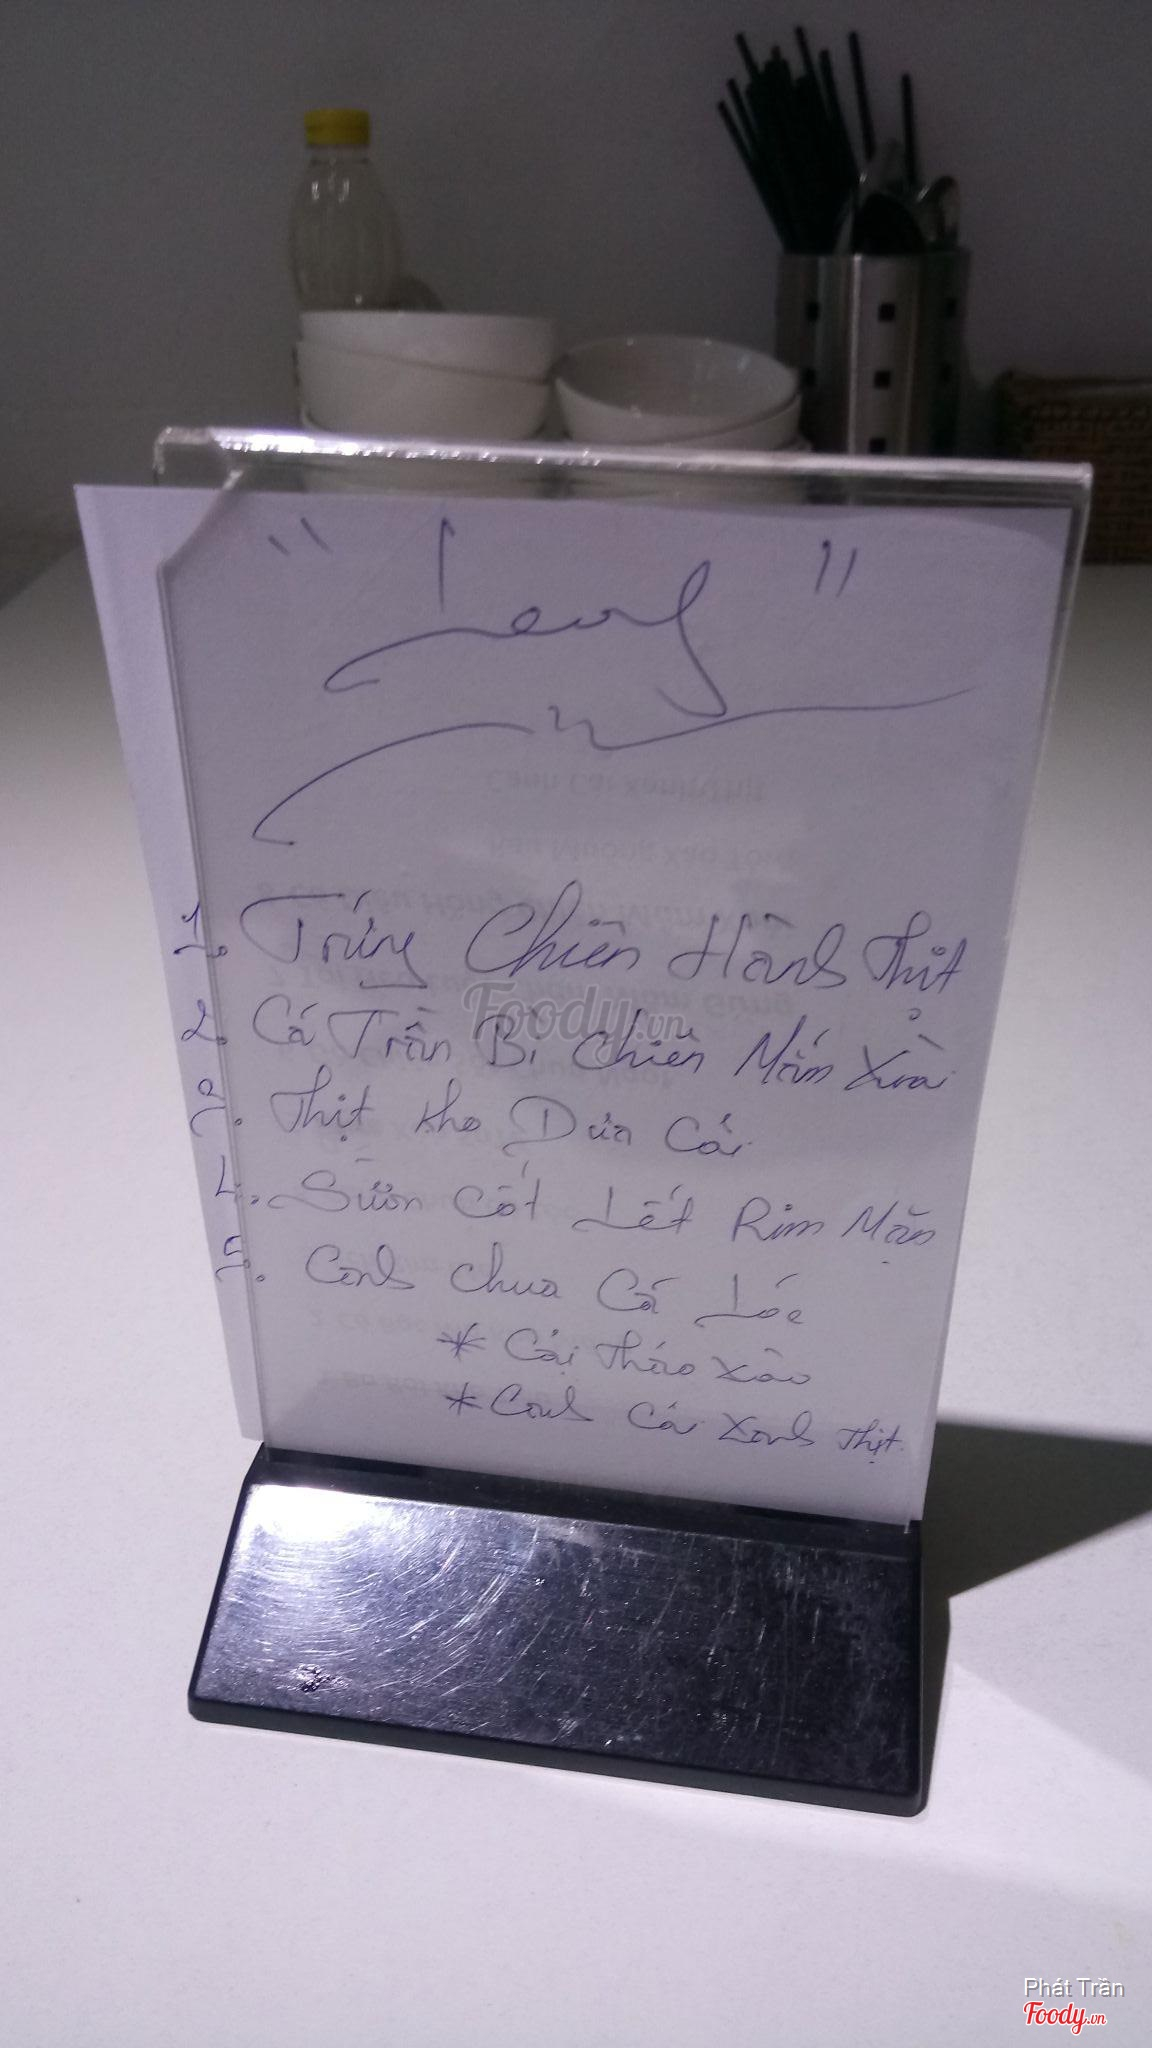 1. Trứng Chiên Hành Thịt
2. Cá Trần Bì Chiên Mắm Xoài
3. Thịt Kho Dưa Cải
4. Sườn Cốt Lết Rim Mặn
5. Canh Chua Cá Lóc
* Cải Thảo Xào
* Canh Cải Xanh Thịt
Foody.vn
Phát Trần
Foody.vn